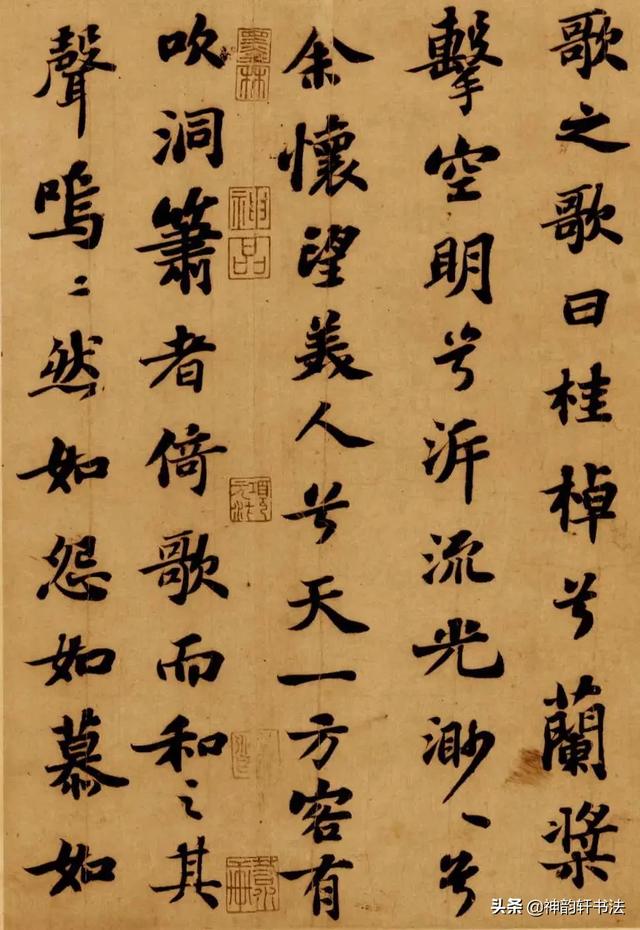 歌之歌曰桂棹兮蘭槳
擊空明兮泝流光渺〻兮
余懷望美人兮天一方客有
吹洞簫者倚歌而和之其
聲嗚〻然如怨如慕如
神品
头条 @神韵轩书法